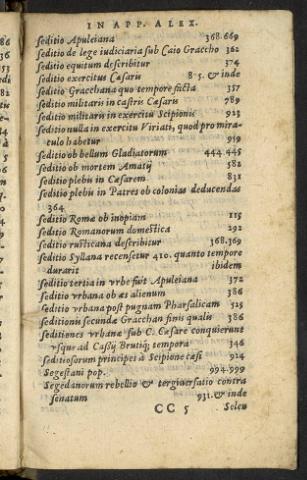 IN APP. ALEX.
seditio Apuleiana 368.669
seditio de lege iudiciaria sub Caio Graccho 362
seditio equitum describitur 374
seditio exercitus Cæsaris 8 5. & inde
seditio Gracchana quo tempore sicta 357
seditio militaris in castris Cæsaris 789
seditio militaris in exercitu Scipionis 923
seditio nulla in exercitu Viriati, quod pro mira-
culo habetur 959
seditio ob bellum Gladiatorum 444 445
seditio ob mortem Amatij 582
seditio plebis in Cæsarem 831
seditio plebis in Patres ob colonias deducendas
364
seditio Romæ ob inopiam 115
seditio Romanorum domestica 292
seditio rusticana describitur 368.369
seditio Syllana recensetur 410. quanto tempore
durarit ibidem
seditio tertia in vrbe fuit Apuleiana 372
seditio vrbana ob æs alienum 386
seditio vrbana post pugnam Pharsalicam 525
seditionis secundæ Gracchan finis qualis 386
seditiones vrbanæ sub C. Cæsare conquierunt
vsque ad Cassij Brutiq; tempora 346
seditiosorum principes à Scipione cæsi 924
Segestani pop. 994.999
Segedanorum rebellio & tergiuersatio contra
senatum 931. & inde
CC 5 Seleu
86
36
53
edi
82